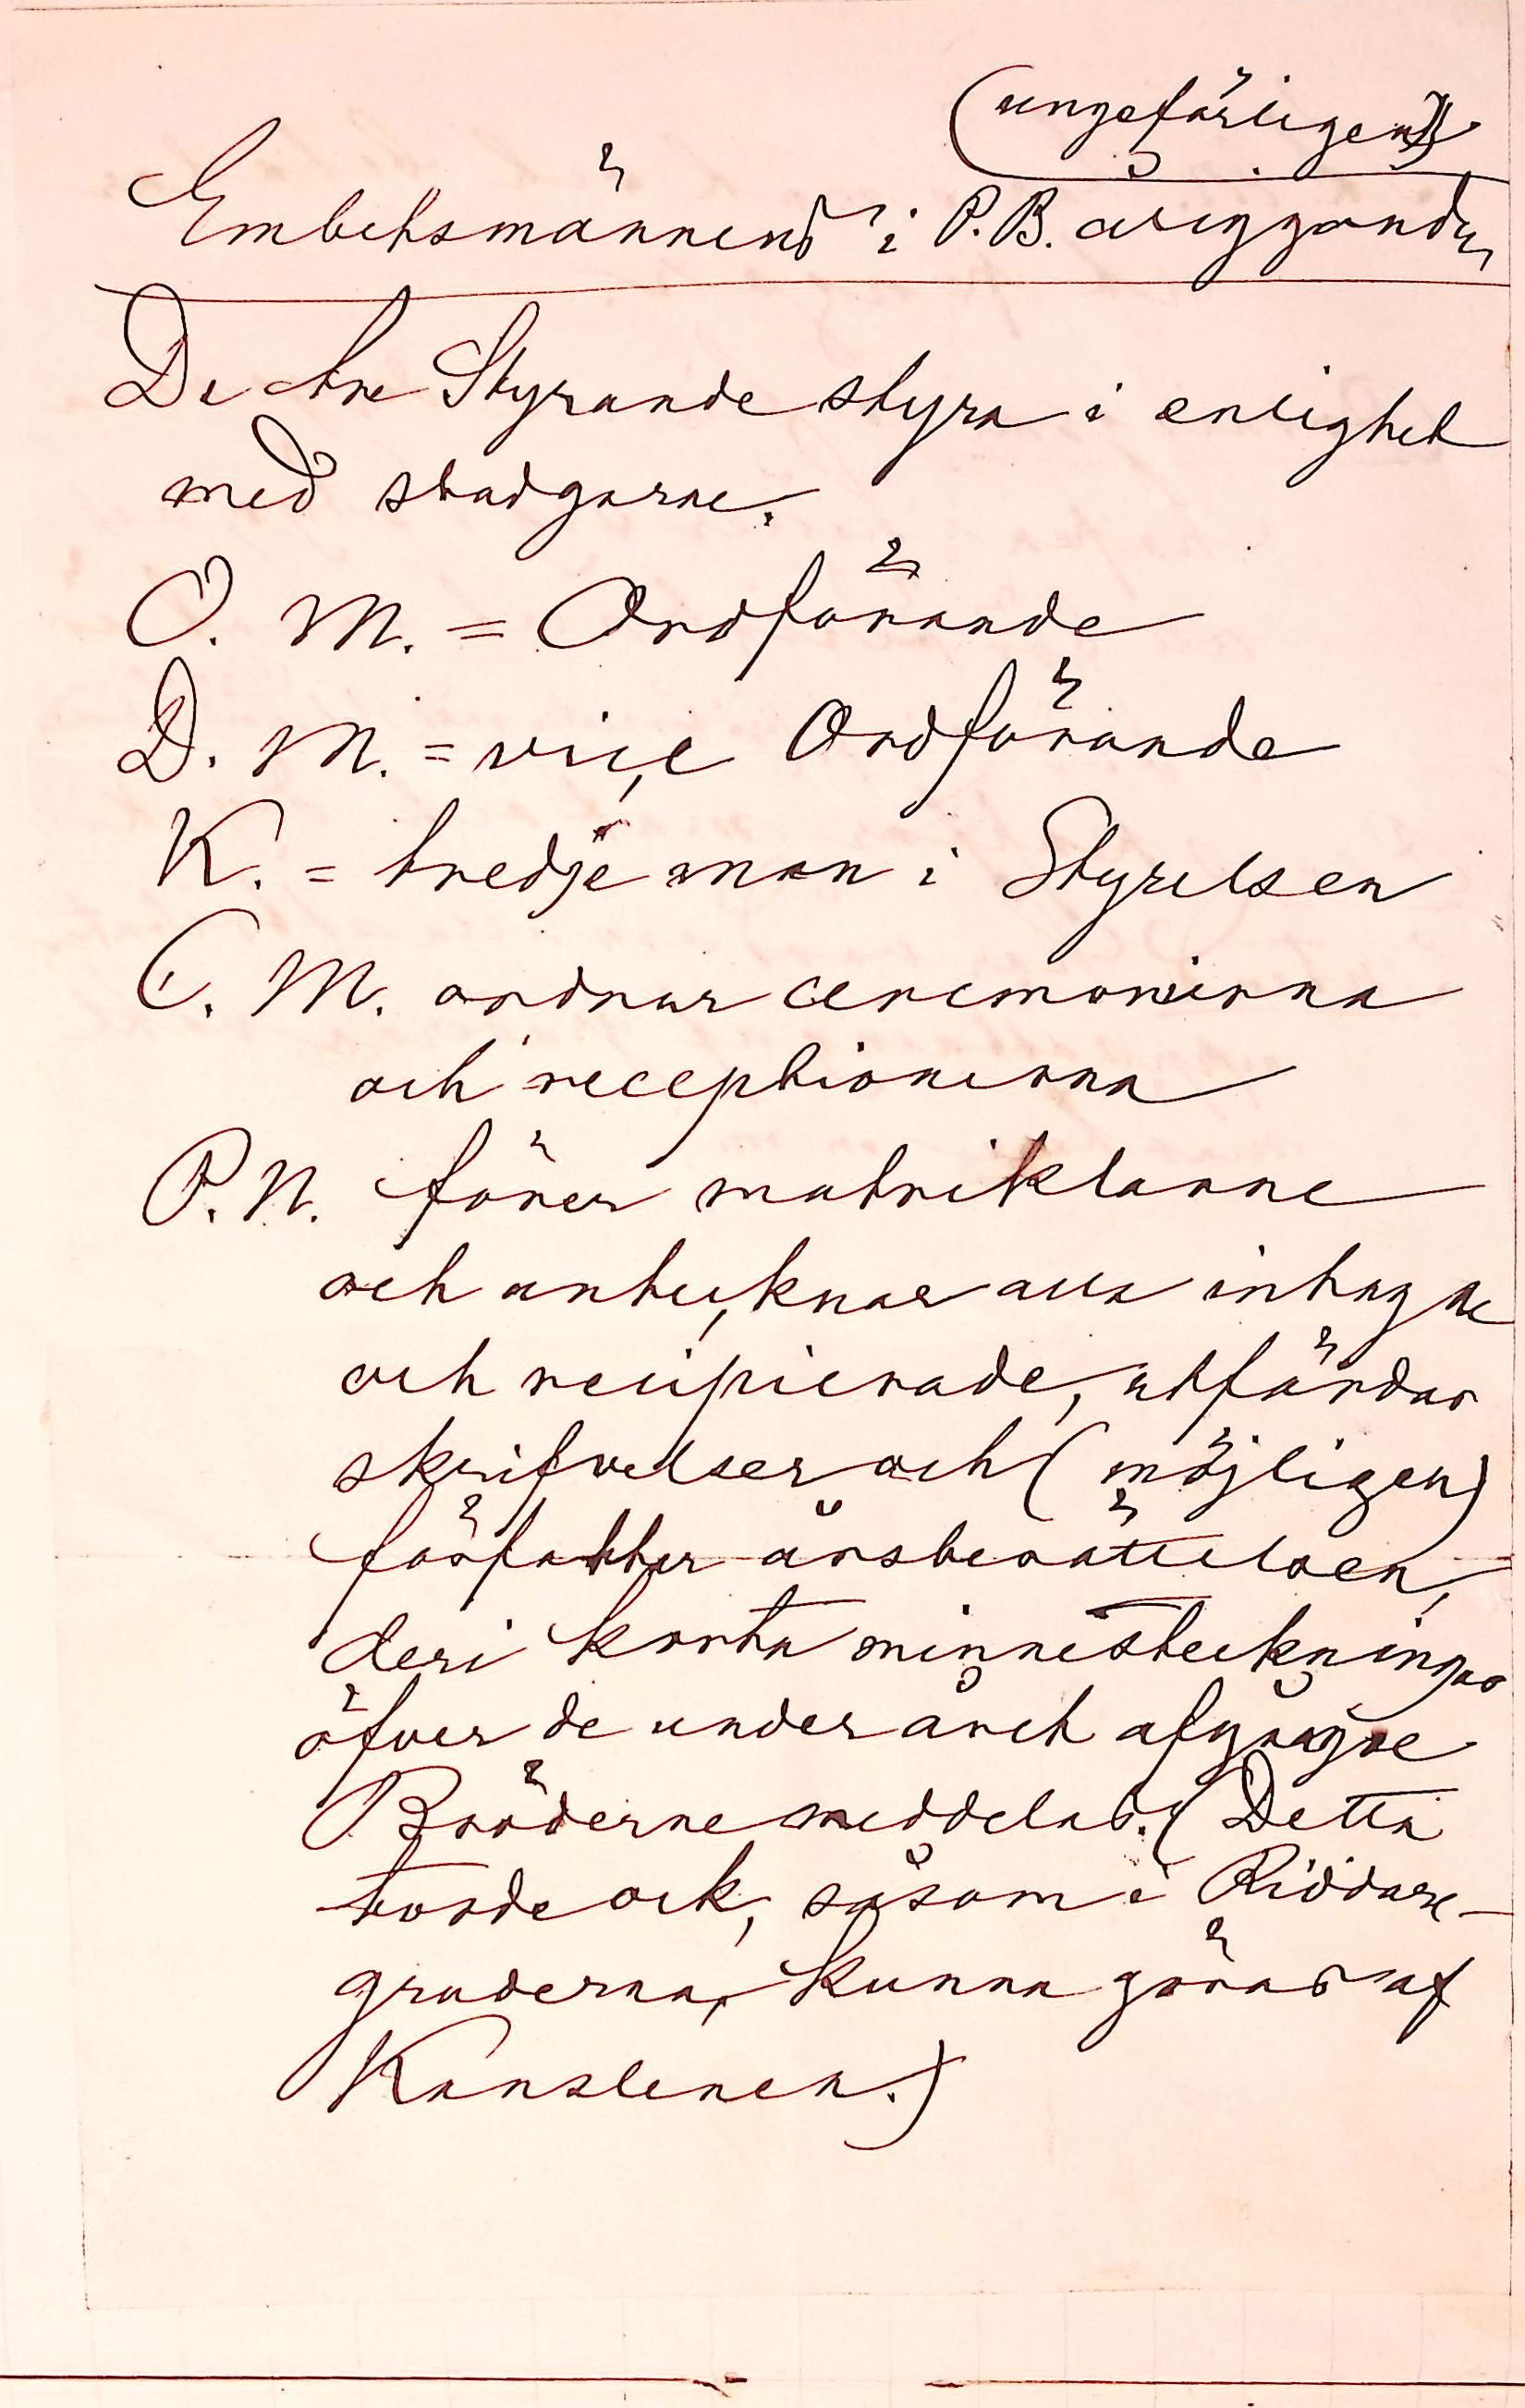 (ungefärligen)
Embetsmännens i P.B. åligganden
De tre Styrande styra i enlighet
med stadgarne.
O. M. = Ordförande
D. M. = vice Ordförande
K. = tredje man i Styrelsen
C. M. ordnar ceremonierna
och receptionerna
P. N. förer matriklarne
och antecknar alla intagne
och recipierade, utfärdar
skrifvelser och (möjligen)
författar årsberättelsen,
deri korta minnesteckningar
öfver de under året afgångne
Bröderne meddelas. (Detta
torde ock, såsom i Riddare-
graderna, kunna göras af
Kansleren.)